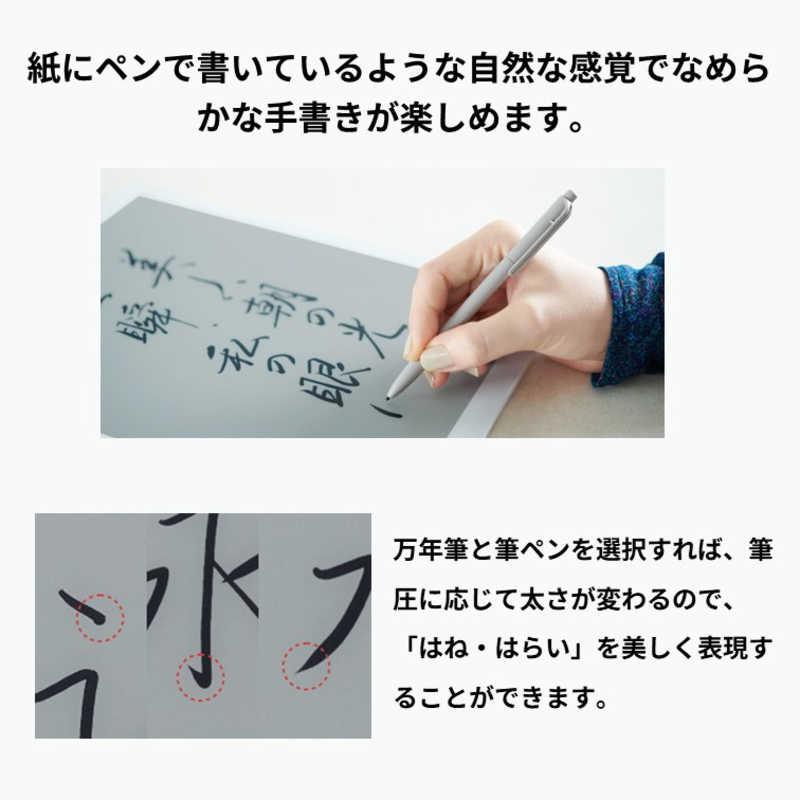 紙にペンで書いているような自然な感覚でなめら
かな手書きが楽しめます。
美しい朝の光
瞬
私の眼
万年筆と筆ペンを選択すれば、筆
圧に応じて太さが変わるので、
「はね・はらい」を美しく表現す
ることができます。